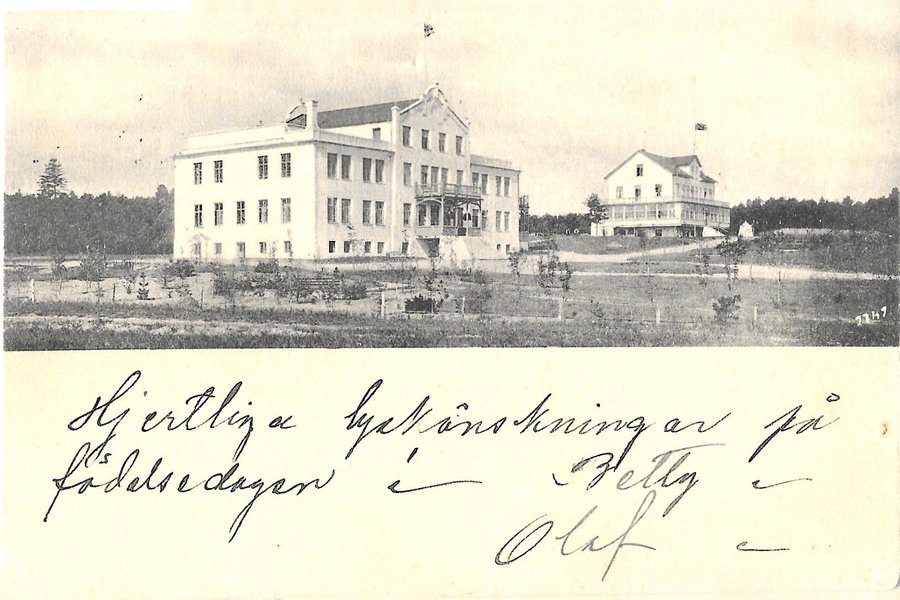 1741
Hjertliga lyckönskningar på
födelsedagen
Betty
Olof